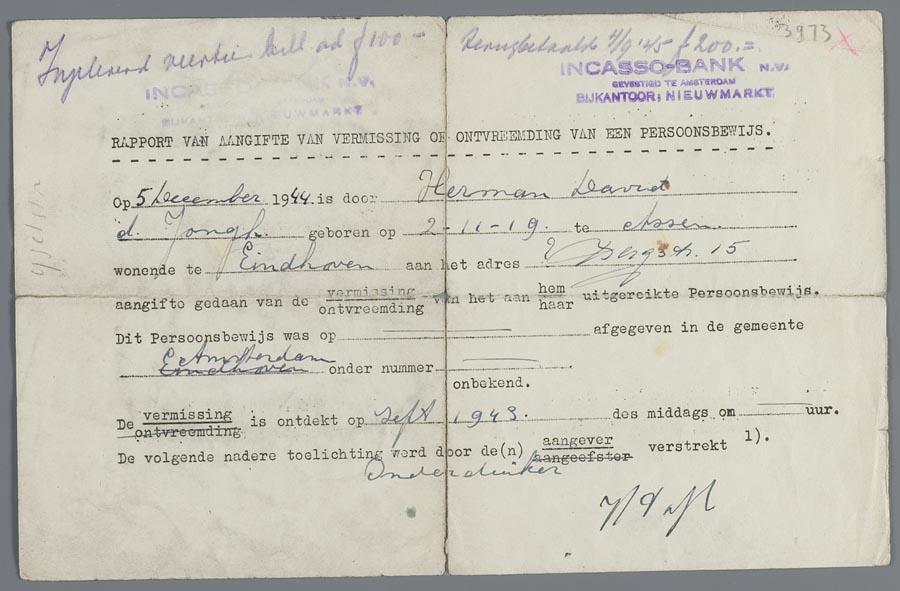 Ingeleverd muntbill ad f 100 -
Terugbetaald 4/9 '45 f 200.=
3973 x
INCASSO-BANK N.V.
INCASSO-BANK N.V.
GEVESTIGD TE AMSTERDAM
BIJKANTOOR: NIEUWMARKT
BIJKANTOOR: NIEUWMARKT
RAPPORT VAN AANGIFTE VAN VERMISSING OF ONTVREEMDING VAN EEN PERSOONSBEWIJS.
Op 5 December 1944. is door Herman David
d. Jongh. geboren op 2-11-19. te Assen.
wonende te Eindhoven aan het adres Bergstr. 15
aangifte gedaan van de vermissing ontvreemding van het aan hem haar uitgereikte Persoonsbewijs.
Dit Persoonsbewijs was op afgegeven in de gemeente
Amsterdam
Eindhoven onder nummer
onbekend.
De vermissing ontvreemding is ontdekt op Sept 1943. des middags om uur.
De volgende nadere toelichting werd door de(n) aangever aangeefster verstrekt 1).
Onderduiker